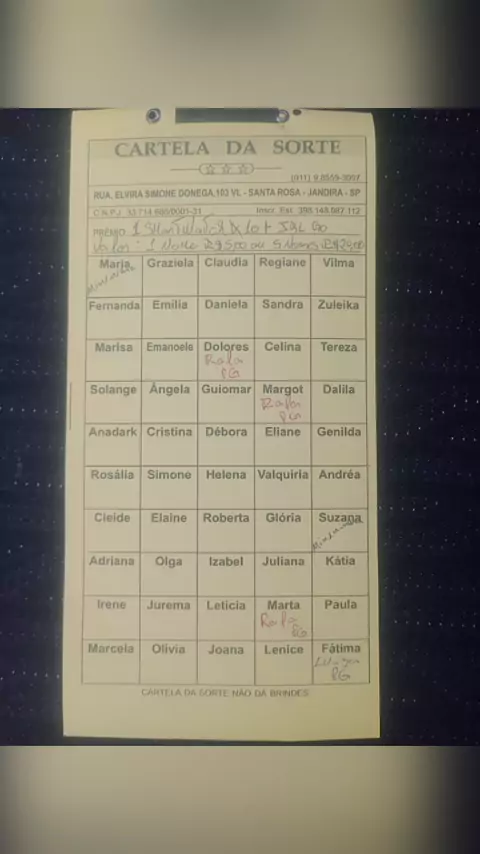 CARTELA DA SORTE
RUA, ELVIRA SIMONE DONEGA,103 VL - SANTA ROSA - JANDIRA - SP
PRÊMIO 1
Valor: 1 Nome R$5,00 ou 5 Nomes
Maria Graziela Claudia Regiane Vilma
Fernanda Emília Daniela Sandra Zuleika
Marisa Emanoele Dolores Celina Tereza
Rafa
PG
Solange Ângela Guiomar Margot Dalila
Rafa
Anadark Cristina Débora Eliane Genilda
Rosália Simone Helena Valquiria Andréa
Cleide Elaine Roberta Glória Suzana
Adriana Olga Izabel Juliana Kátia
Irene Jurema Leticia Marta Paula
Rafa
PG
Marcela Olivia Joana Lenice Fátima
PG
CARTELA DA SORTE NÃO DÁ BRINDES